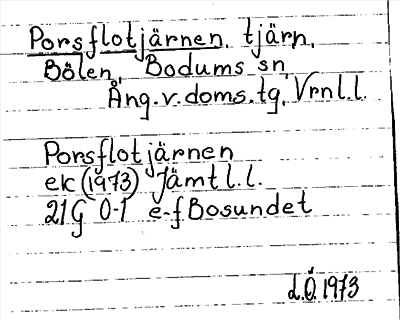 Porsflotjärnen, tjärn,
Bölen, Bodums sn,
Ång.v.doms.tg, Vrnl.l.
Porsflotjärnen
ek (1973) Jämtl.l.
21G 0-1 e-f Bosundet
L.Ö. 1973